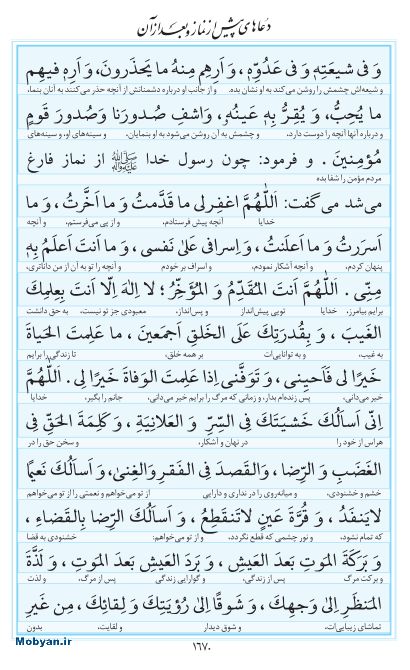 دعاهای پیش از نماز و بعد از آن
وَ فی شیعَتِهٖ وَ فی عَدُوِّهٖ، وَ اَرِهِم مِنهُ ما یَحذَرونَ، وَ اَرِهٖ فیهِم
و شیعه‌اش چشمش را روشن می‌کند به او نشان بده. و از جانب او درباره دشمنانش از آنچه حذر می‌کنند به آنان بنما،
ما یُحِبُّ، وَ یُقِرُّ بِهٖ عَینُهٗ، وَاشفِ صُدورَنا وَ صُدورَ قَومٍ
و درباره آنها آنچه را دوست دارد، و چشمش به آن روشن می‌شود به او بنمایان، و سینه‌های او، و سینه‌های
مُؤمِنینَ . و فرمود: چون رسول خدا ﷺ از نماز فارغ
مردم مؤمن را شفا بده
می‌شد می‌گفت: اَللّٰهُمَّ اغفِرلی ما قَدَّمتُ وَ ما اَخَّرتُ، وَ ما
خدایا آنچه پیش فرستادم، و از پی می‌فرستم، و آنچه
اَسرَرتُ وَ ما اَعلَنتُ، وَ اِسرافی عَلیٰ نَفسی، وَ ما اَنتَ اَعلَمُ بِهٖ
پنهان کردم، و آنچه آشکار نمودم، و اسراف بر خودم و آنچه را تو به آن از من داناتری،
مِنّی . اَللّٰهُمَّ اَنتَ المُقَدِّمُ وَ المُؤَخِّرُ؛ لا اِلٰهَ اِلّا اَنتَ بِعِلمِكَ
برایم بیامرز. خدایا تویی پیش‌انداز و پس‌انداز، معبودی جز تو نیست، به حق دانشت
الغَیبَ، وَ بِقُدرَتِكَ عَلَی الخَلقِ اَجمَعینَ، ما عَلِمتَ الحَیاةَ
به غیب، و به توانایی‌ات بر همه خلق، تا زندگی را برایم
خَیرًا لی فَاَحیِنی، وَ تَوَفَّنی اِذا عَلِمتَ الوَفاةَ خَیرًا لی. اَللّٰهُمَّ
خیر می‌دانی، پس زنده‌ام بدار، و زمانی که مرگ را برایم خیر می‌دانی، جانم را بگیر، خدایا
اِنّی اَساَلُكَ خَشیَتَكَ فِی السِّرِّ وَ العَلانِیَةِ، وَ کَلِمَةَ الحَقِّ فِی
هراس از خود را در نهان و آشکار، و سخن حق را در
الغَضَبِ وَ الرِّضا، وَالقَصدَ فِی الفَقرِ وَالغِنیٰ، وَ اَساَلُكَ نَعیمًا
خشم و خشنودی، و میانه‌روی را در نداری و دارایی از تو می‌خواهم و نعمتی را از تو می‌خواهم
لایَنفَدُ، وَ قُرَّةَ عَینٍ لاتَنقَطِعُ، وَ اَساَلُكَ الرِّضا بِالقَضاءِ،
که تمام نشود، و نور چشمی که قطع نگردد، و از تو می‌خواهم: خشنودی به قضا
وَ بَرَکَةَ المَوتِ بَعدَ العَیشِ، وَ بَردَ العَیشِ بَعدَ المَوتِ، وَ لَذَّةَ
و برکت مرگ پس از زندگی، و گوارایی زندگی پس از مرگ، و لذت
المَنظَرِ اِلیٰ وَجهِكَ، وَ شَوقًا اِلیٰ رُؤیَتِكَ وَ لِقائِكَ، مِن غَیرِ
تماشای زیبایی‌ات، و شوق دیدار و لقایت، بدون
۱۶۷۰
Mobyan.ir